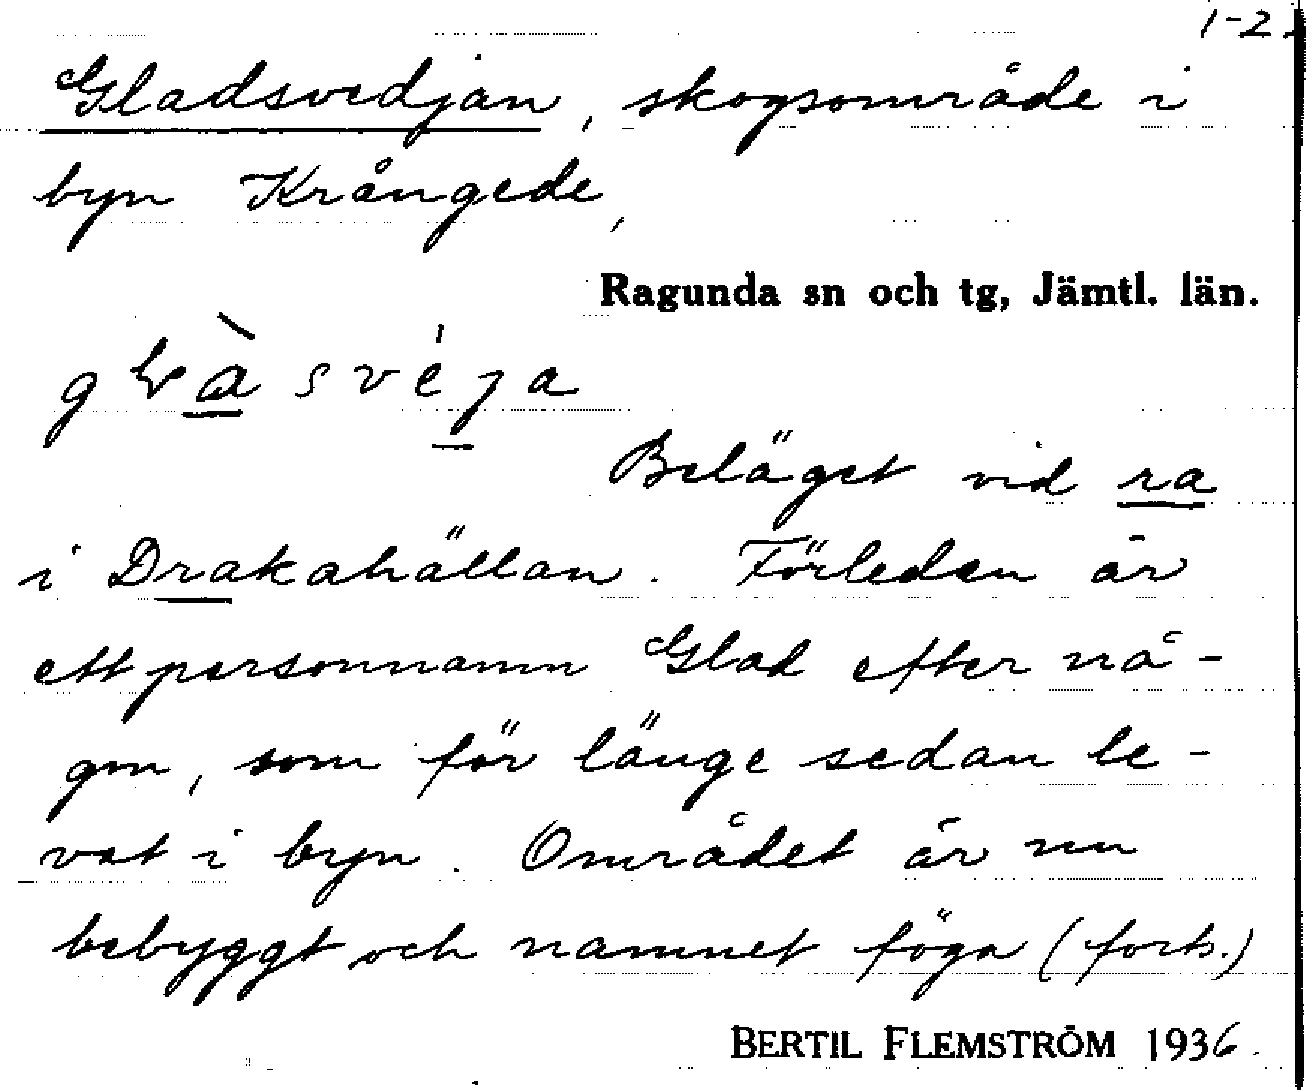 1-2
Gladsvedjan, skogsområde i
byn Krångede,
Ragunda sn och tg, Jämtl. län.
Beläget vid ra
i Drakahällan. Förleden är
ett personnamn Glad efter nå-
gon, som för länge sedan le-
vat i byn. Området är nu
bebyggt och namnet föga (forts.)
BERTIL FLEMSTRÖM 1936.